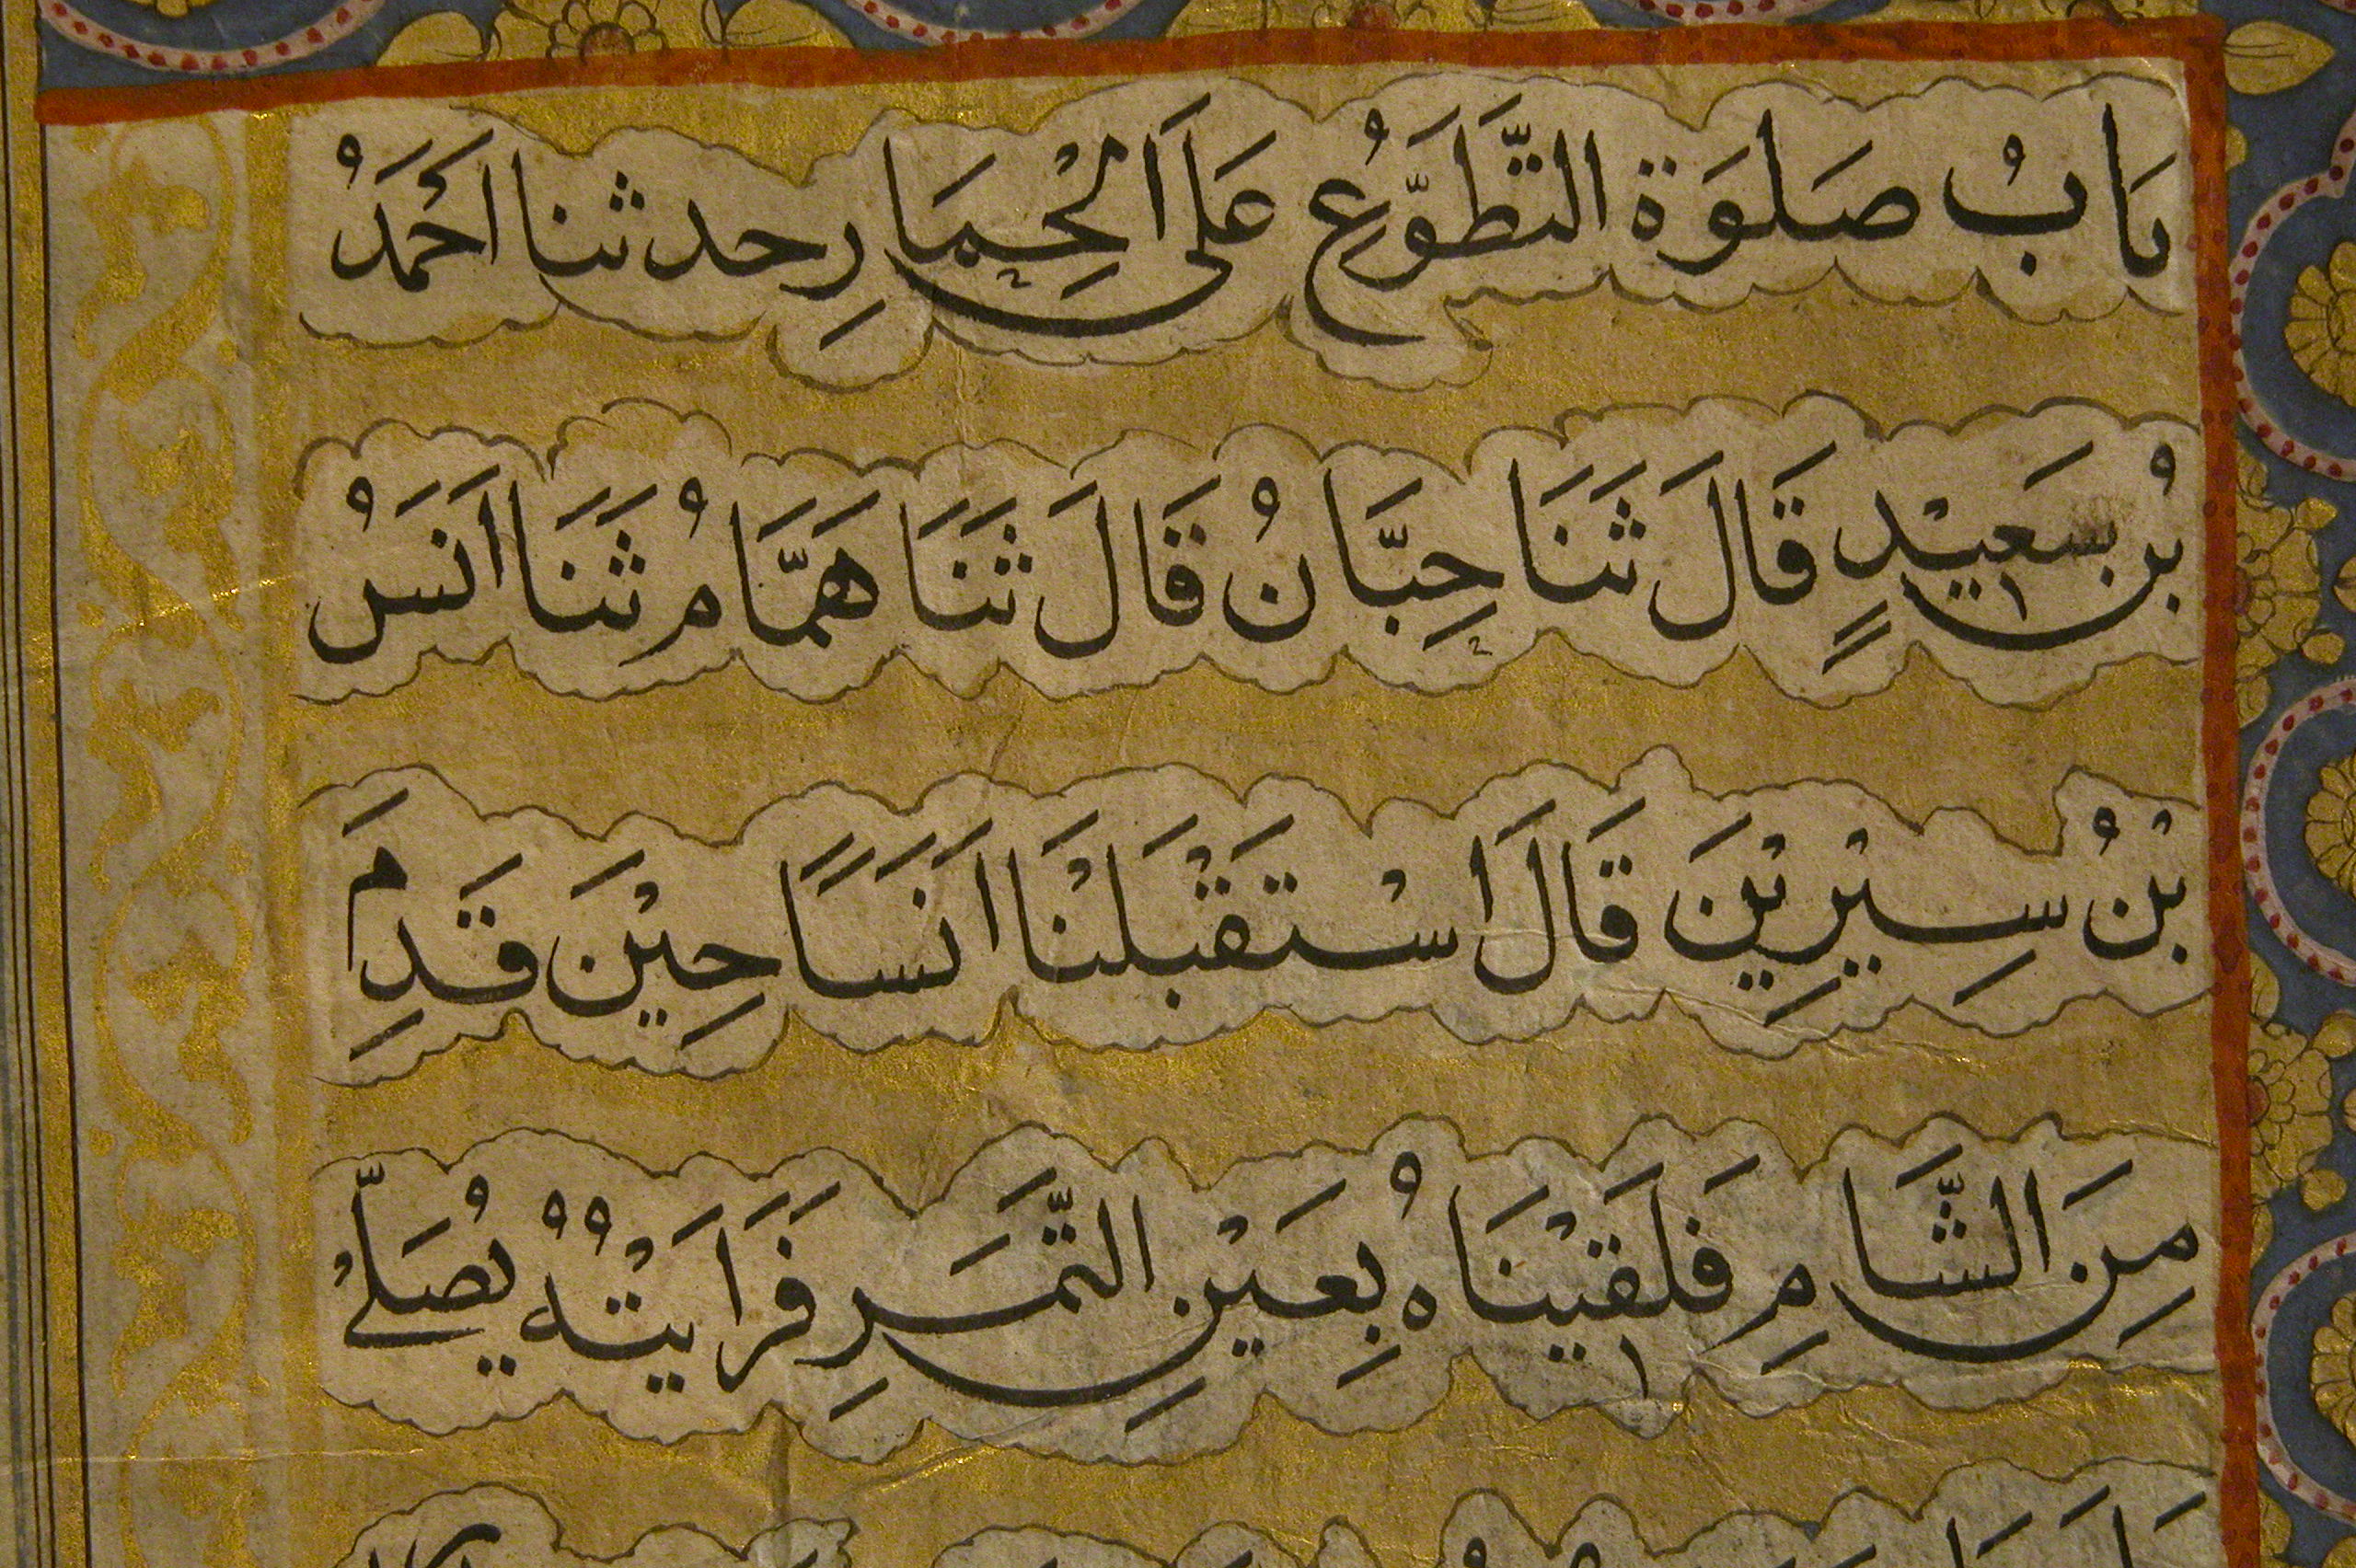 بَابُ صَلٰوَة التَّطَوَّعُِ عَلَى اَلْحِمَارِ حدثنا اَحْمَدُ
بْن سَعِيْدٍ قَالَ ثَنَا حِبَّانُ قَالَ ثَنَا هَمَّامُ ثَنَا اَنَسُ
بْنُ سِيْرِيْنَ قَالَ اَسْتَقْبَلْنَا اَنَسًا حِيْنَ قَدِمَ
مِنَ الشَّامِ فَلَقِيْنَاهُ بِعَيْنِ التَّمَرِ فَرَاَيْتُهُ يُصَلّےْ